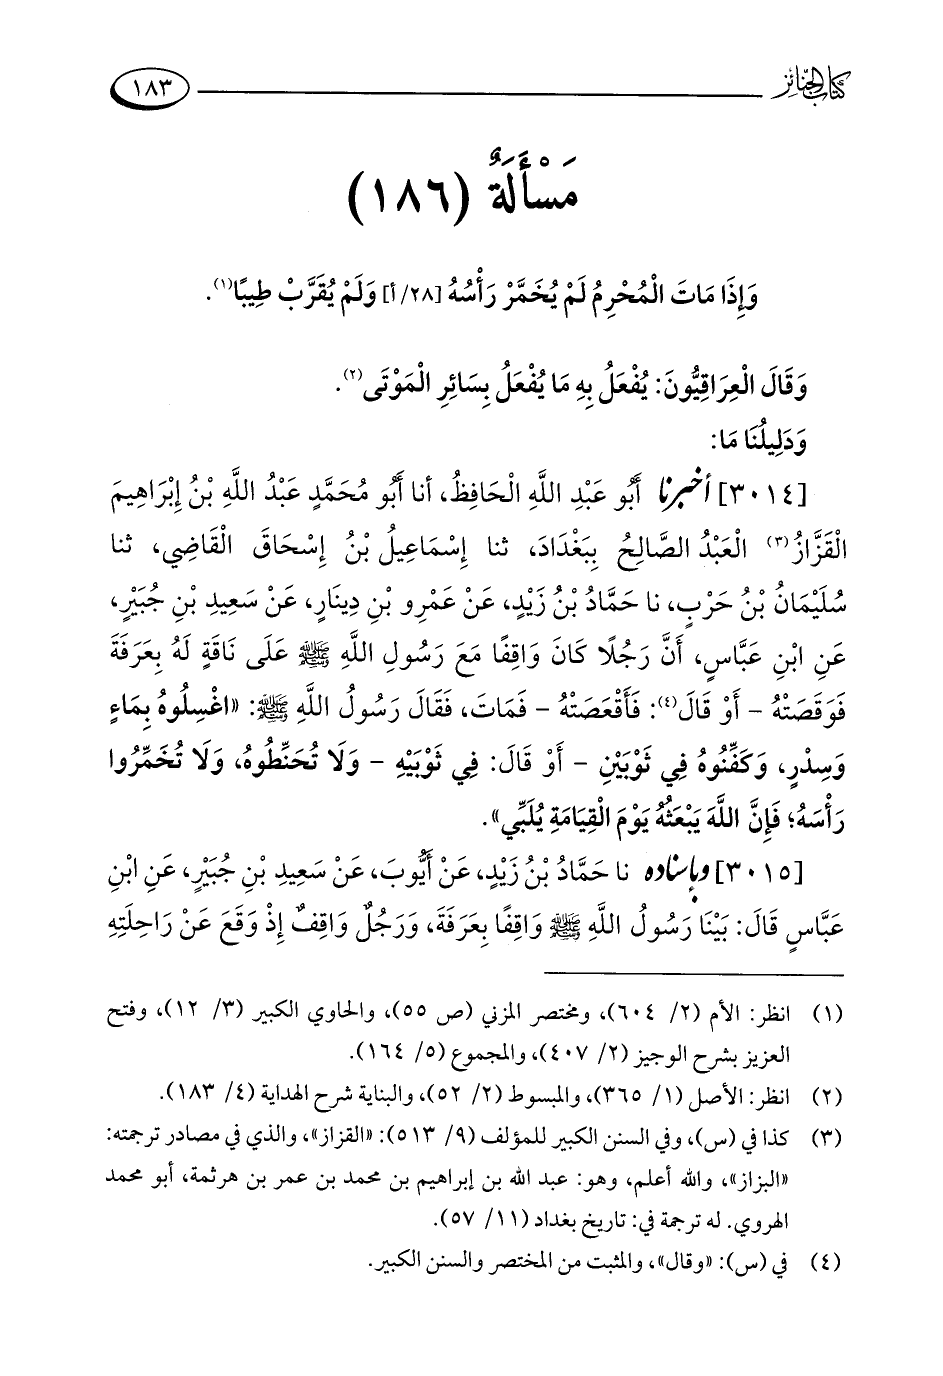 كتاب الجنائز
١٨٣
مَسْأَلَةٌ (١٨٦)
وَإِذَا مَاتَ الْمُحْرِمُ لَمْ يُخَمَّرْ رَأْسُهُ [٢٨/ أ] وَلَمْ يُقَرَّبْ طِيبًا(١).
وَقَالَ الْعِرَاقِيُّونَ: يُفْعَلُ بِهِ مَا يُفْعَلُ بِسَائِرِ الْمَوْتَى(٢).
وَدَلِيلُنَا مَا:
[٣٠١٤] أخبرنا أَبُو عَبْدِ اللَّهِ الْحَافِظُ، أنا أَبُو مُحَمَّدٍ عَبْدُ اللَّهِ بْنُ إِبْرَاهِيمَ
الْقَزَّازُ(٣) الْعَبْدُ الصَّالِحُ بِبَغْدَادَ، ثنا إِسْمَاعِيلُ بْنُ إِسْحَاقَ الْقَاضِي، ثنا
سُلَيْمَانُ بْنُ حَرْبٍ، نا حَمَّادُ بْنُ زَيْدٍ، عَنْ عَمْرِو بْنِ دِينَارٍ، عَنْ سَعِيدِ بْنِ جُبَيْرٍ،
عَنِ ابْنِ عَبَّاسٍ، أَنَّ رَجُلًا كَانَ وَاقِفًا مَعَ رَسُولِ اللَّهِ ﷺ عَلَى نَاقَةٍ لَهُ بِعَرَفَةَ
فَوَقَصَتْهُ - أَوْ قَالَ(٤): فَأَقْعَصَتْهُ - فَمَاتَ، فَقَالَ رَسُولُ اللَّهِ ﷺ: «اغْسِلُوهُ بِمَاءٍ
وَسِدْرٍ، وَكَفِّنُوهُ فِي ثَوْبَيْنِ - أَوْ قَالَ: فِي ثَوْبَيْهِ - وَلَا تُحَنِّطُوهُ، وَلَا تُخَمِّرُوا
رَأْسَهُ؛ فَإِنَّ اللَّهَ يَبْعَثُهُ يَوْمَ الْقِيَامَةِ يُلَبِّي».
[٣٠١٥] وبإسناده نا حَمَّادُ بْنُ زَيْدٍ، عَنْ أَيُّوبَ، عَنْ سَعِيدِ بْنِ جُبَيْرٍ، عَنِ ابْنِ
عَبَّاسٍ قَالَ: بَيْنَا رَسُولُ اللَّهِ ﷺ وَاقِفًا بِعَرَفَةَ، وَرَجُلٌ وَاقِفٌ إِذْ وَقَعَ عَنْ رَاحِلَتِهِ
(١) انظر: الأم (٢/ ٦٠٤)، ومختصر المزني (ص ٥٥)، والحاوي الكبير (٣/ ١٢)، وفتح
العزيز بشرح الوجيز (٢/ ٤٠٧)، والمجموع (٥/ ١٦٤).
(٢) انظر: الأصل (١/ ٣٦٥)، والمبسوط (٢/ ٥٢)، والبناية شرح الهداية (٤/ ١٨٣).
(٣) كذا في (س)، وفي السنن الكبير للمؤلف (٩/ ٥١٣): «القزاز»، والذي في مصادر ترجمته:
«البزاز»، والله أعلم، وهو: عبد الله بن إبراهيم بن محمد بن عمر بن هرثمة، أبو محمد
الهروي. له ترجمة في: تاريخ بغداد (١١/ ٥٧).
(٤) في (س): «وقال»، والمثبت من المختصر والسنن الكبير.